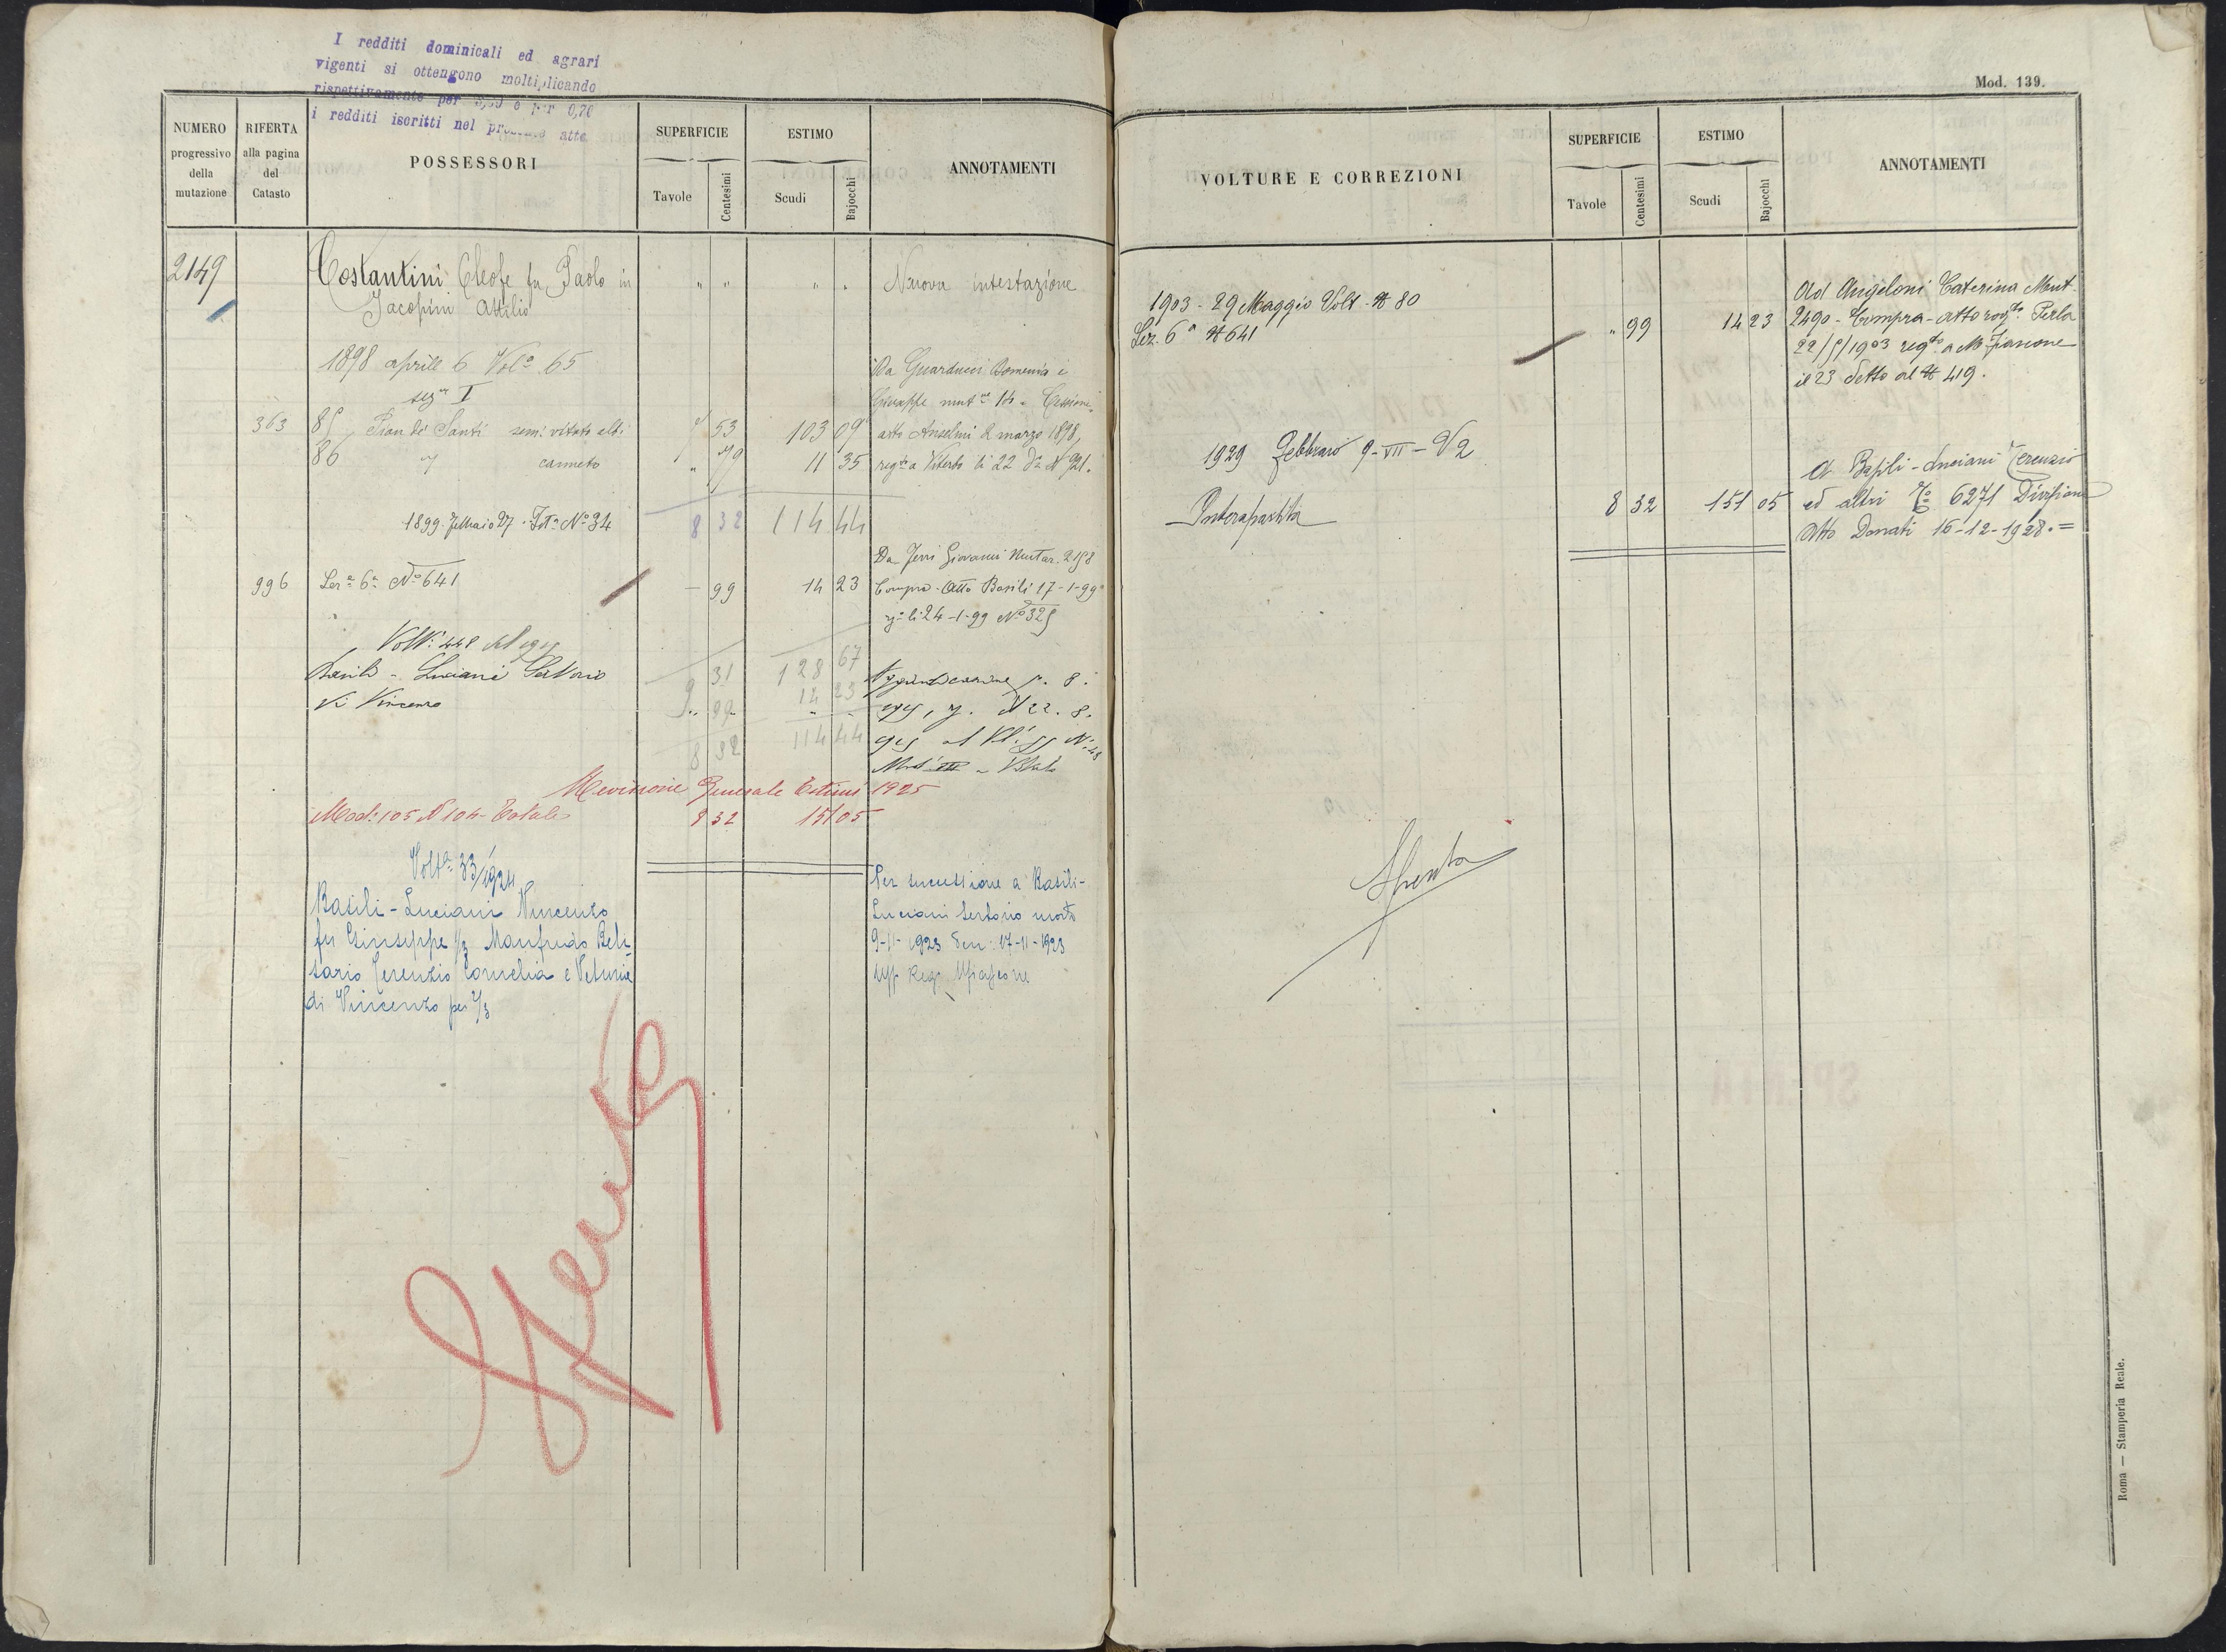 I redditi dominicali ed agrari
vigenti si ottengono moltiplicando
rispettivamente per 0,70
i redditi iscritti nel atto
NUMERO
progressivo
della
mutazione
RIFERTA
alla pagina
del
Catasto
POSSESSORI
SUPERFICIE
Tavole
Centesimi
ESTIMO
Scudi
Bajocchi
ANNOTAMENTI
2149
Costantini Cleofe fu Paolo in
Jacopini Attilio
" "
" "
Nuova intestazione
1898 aprile 6 Vol.ª 65
sez.ne I
Da Guarducci Domenica e
Giuseppe mut.ne 14 - Cessione
363 85 Pian de Santi sem. vitato 7 53 103 09 atto Anselmi 2 marzo 1898,
86 " canneto " 79 11 35 reg.to a Viterbo li 22 d.º N 921.
1899. Febbraio 27. N.º 34 8 32 114 44
Da Giovanni Mutaz. 2158
996 Sez.e 6.ª N.º 641 — 99 14 23 Compra - Atto Basili 17-1-99
li 24-1-99 N.º 325
Volt.ª 448 del
Basili - Luciani Sertorio
di Vincenzo
9 31 128 67
" 99 14 23
8 32 114 44
Revisione Generale Estimi 1925
Mod: 105 N 104 - Totale 8 32 151 05
Volt.ª 33/1924
Basili - Luciani Vincenzo
fu Giuseppe 1/3 Manfredo Beli-
sario Terenzio Cornelia e Veturia
di Vincenzo per 2/3
Per successione a Basili-
Luciani Sertorio morto
9-11-1923 Den: 17-11-1923
Uff Reg. Mfiascone
Spenta
Mod. 139.
VOLTURE E CORREZIONI
SUPERFICIE
Tavole
Centesimi
ESTIMO
Scudi
Bajocchi
ANNOTAMENTI
1903 - 29 Maggio Volt. N 80
Sez. 6ª N 641
" 99 14 23
Ad Angeloni Caterina Mut.
2490 - Compra - atto rog.to Perla
22/5/1903 reg.to a M. Fiascone
il 23 detto al N 419.
1929 Febbraio 9 - VII - N 2
Intera partita
8 32 151 05
A Basili - Luciani Terenzio
ed altri 6271 Divisione
Atto Donati 16-12-1928. =
Spenta
Roma — Stamperia Reale.